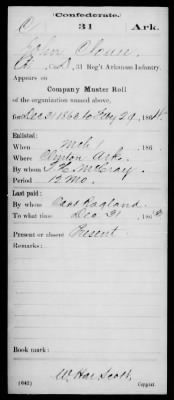 Confederate.
C 31 Ark.
John Clouse
Co. D, 31 Reg't Arkansas Infantry.
Appears on
Company Muster Roll
of the organization named above,
for Dec 31 1863 to Feby 29, 1864.
Enlisted:
When Mch 1, 186
Where Clinton Ark.
By whom T. H. McCray
Period 12 Mo.
Last paid:
By whom Capt Ragland
To what time Dec 31, 186
Present or absent Present
Remarks:
Book mark:
(642) Copyist.